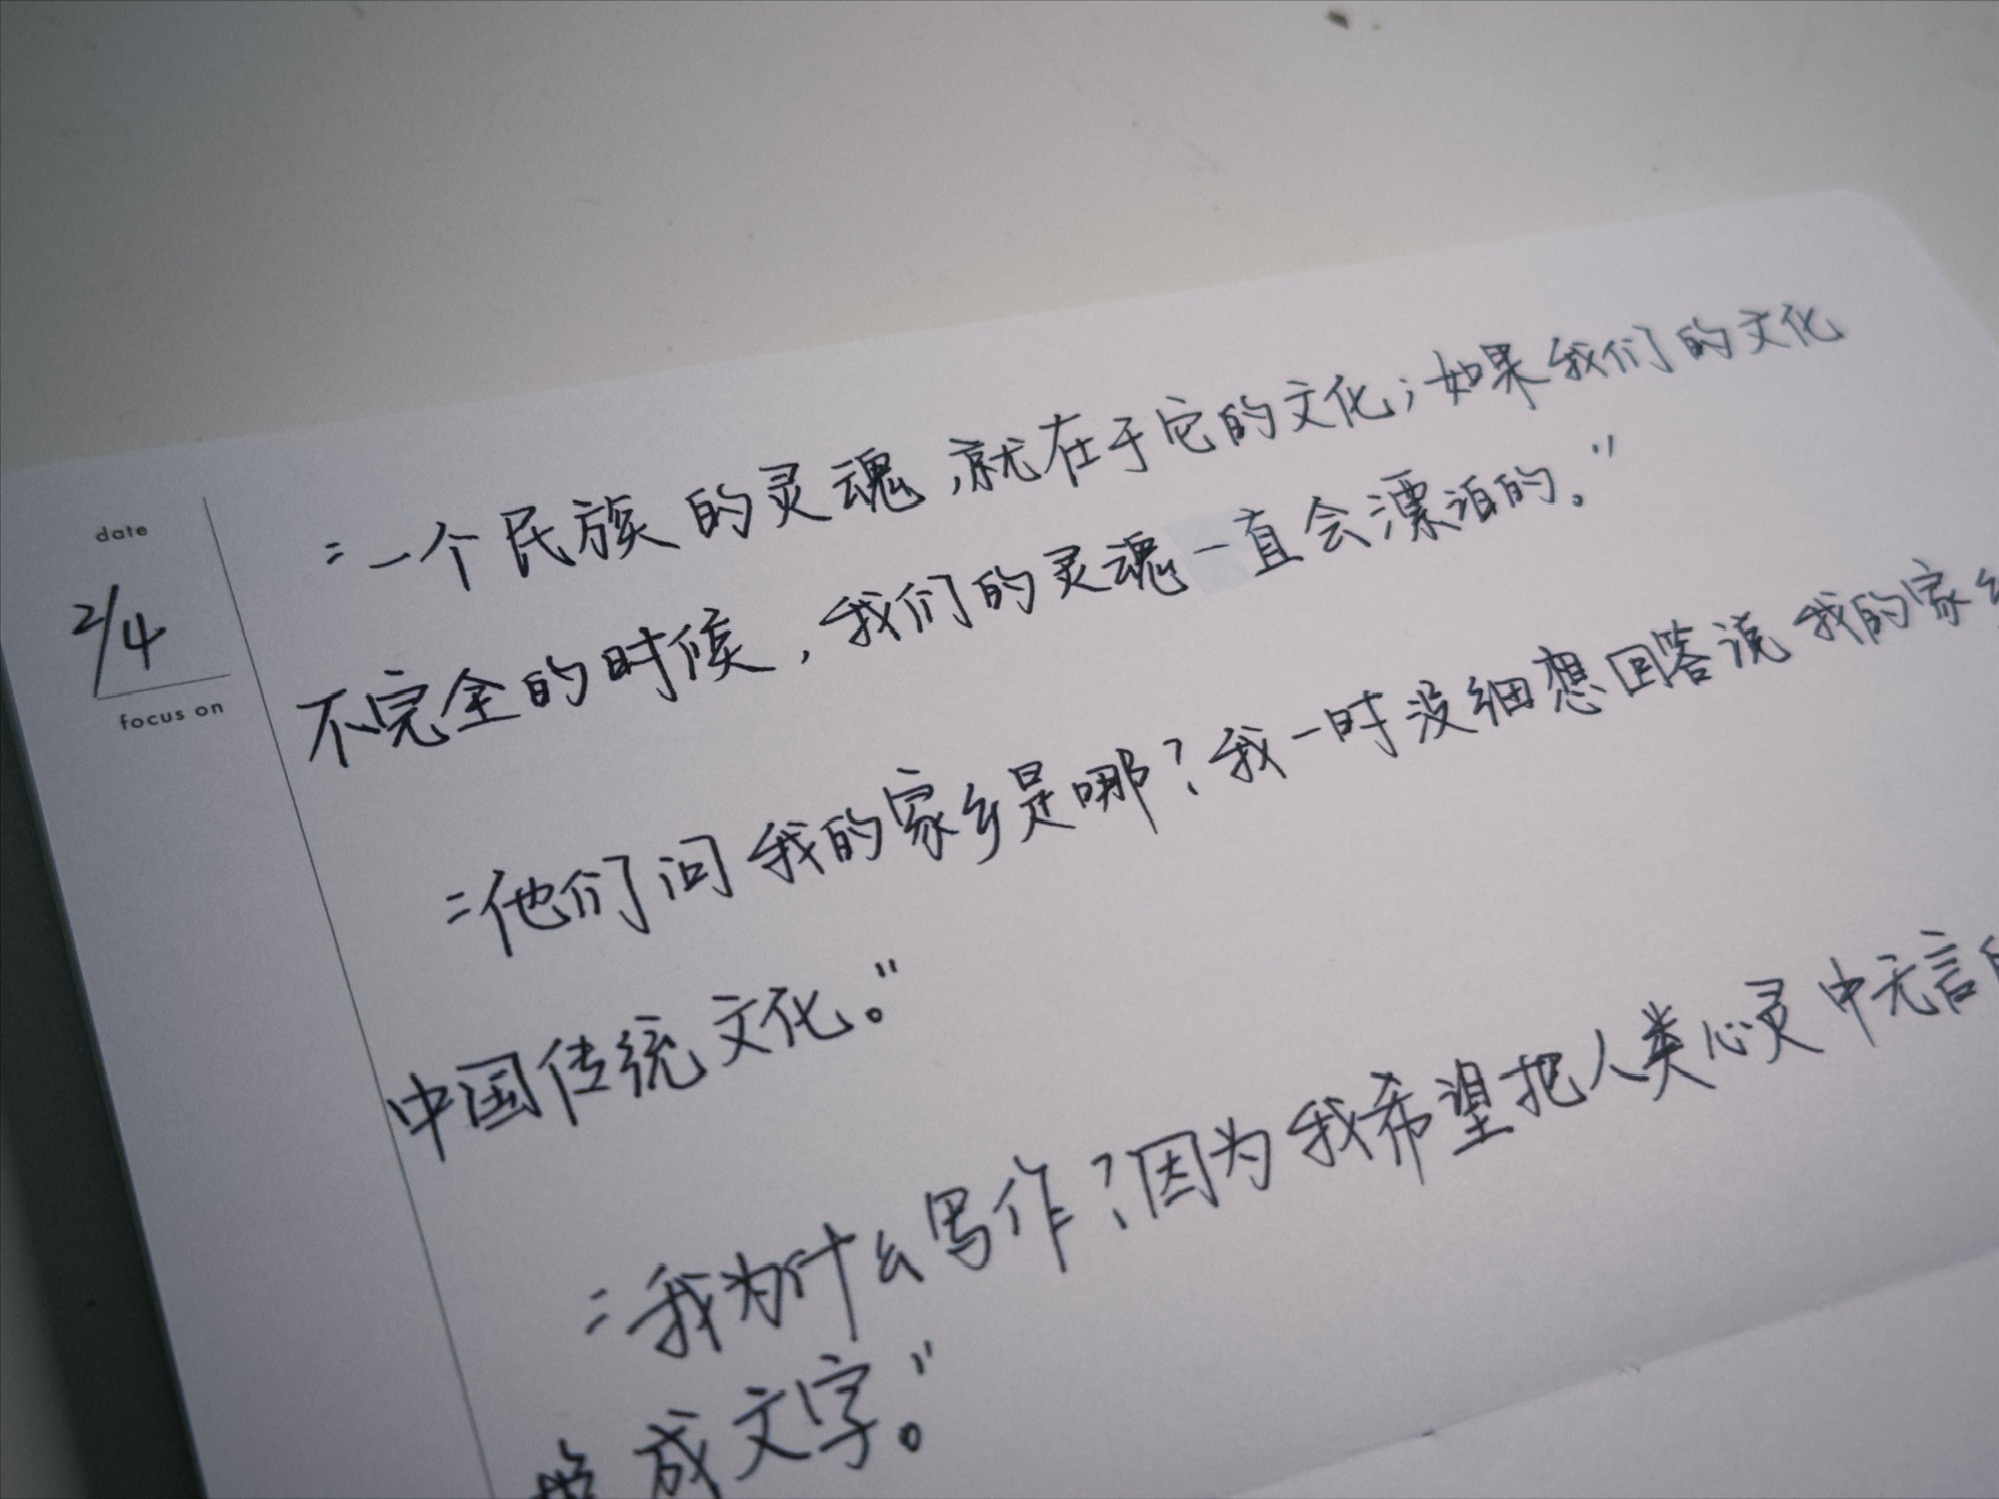 date
2/4
focus on
“一个民族的灵魂,就在于它的文化;如果我们的文化
不完全的时候,我们的灵魂一直会漂泊的。”
“他们问我的家乡是哪?我一时没细想回答说我的家
中国传统文化。”
“我为什么写作?因为我希望把人类心灵中无言
成文字。”